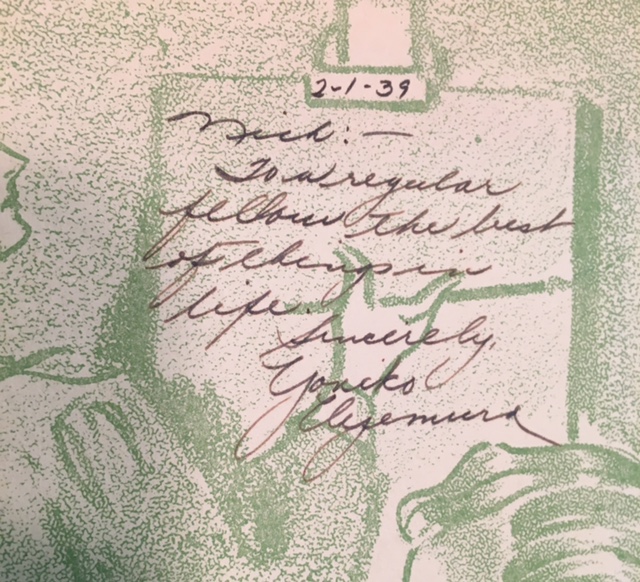 2-1-39
Nick:—
To a regular
fellow the best
of things in
life.
Sincerely,
Yoniko
Uyemura